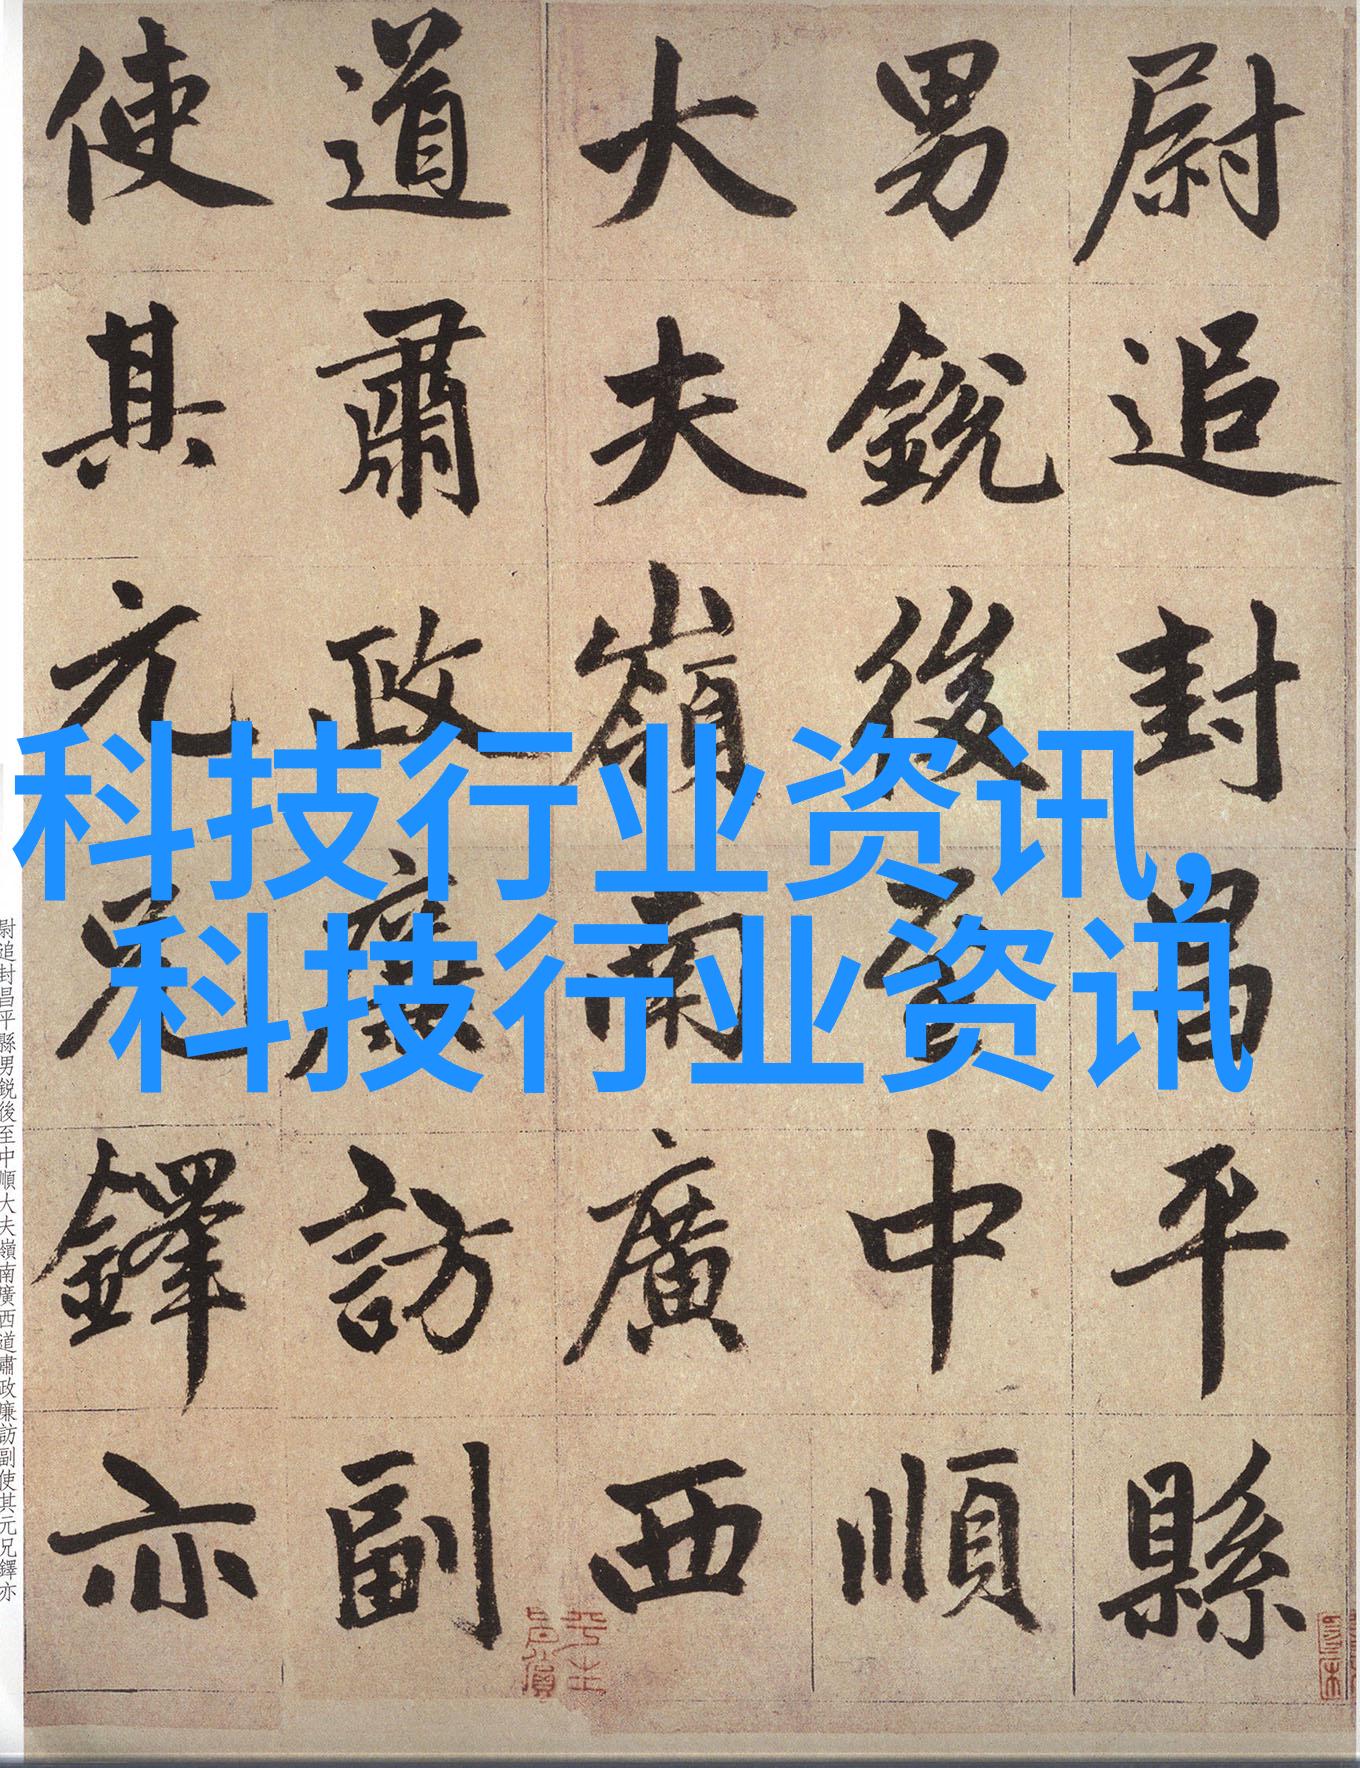 尉追封昌平縣
男銳後至中順
大夫嶺南廣西
道肅政廉訪副
使其元兄鐸亦
科技行业资讯,
科技行业资讯
尉追封昌平縣男銳後至中順大夫嶺南廣西道肅政廉訪副使其元兄鐸亦